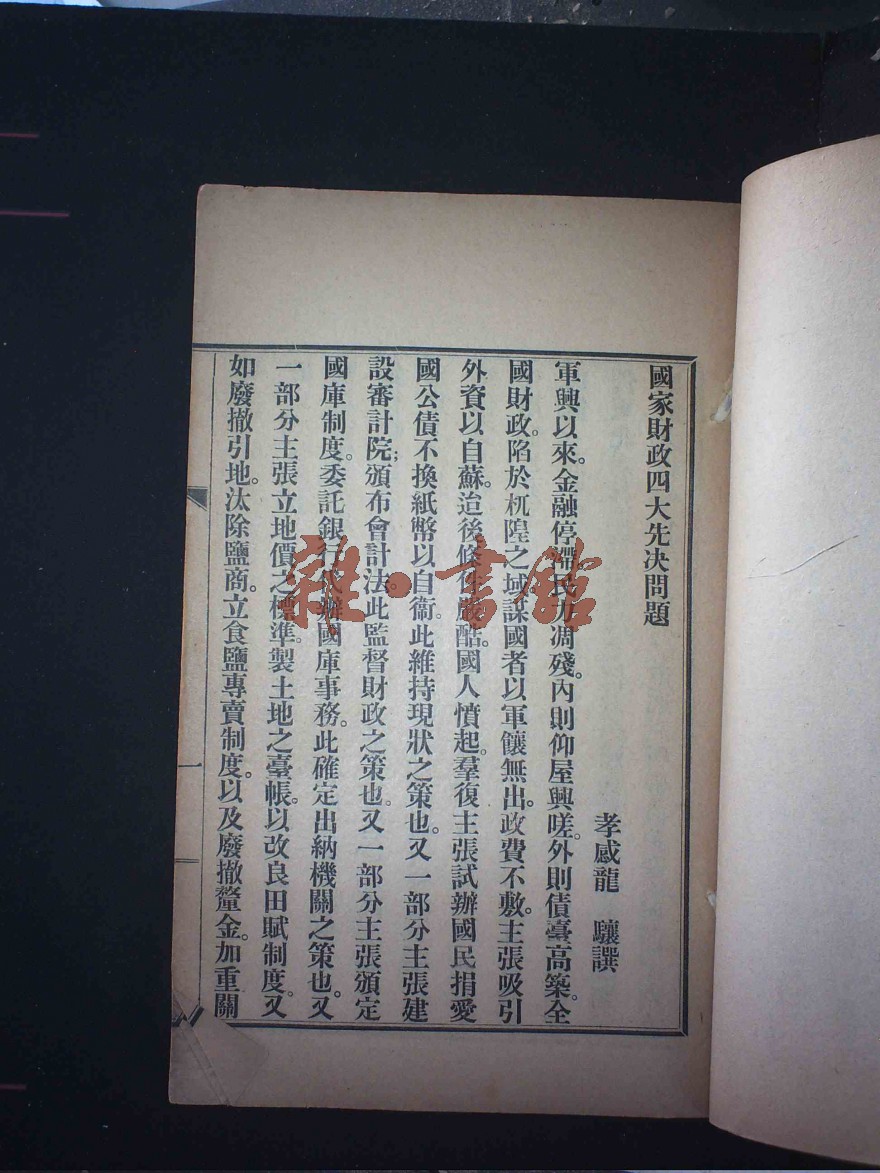 國家財政四大先決問題
孝感龍 驤譔
軍興以來。金融停滯。民力凋殘。內則仰屋興嗟。外則債臺高築。全
國財政。陷於杌隉之域。謀國者以軍饟無出。政費不敷。主張吸引
外資以自蘇。迨後條件嚴酷。國人憤起。羣復主張試辦國民捐愛
國公債不換紙幣以自衞。此維持現狀之策也。又一部分主張建
設審計院;頒布會計法。此監督財政之策也。又一部分主張頒定
國庫制度。委託銀行代辦國庫事務。此確定出納機關之策也。又
一部分主張立地價之標準。製土地之臺帳。以改良田賦制度。又
如廢撤引地。汰除鹽商。立食鹽專賣制度。以及廢撤釐金。加重關
一
雜·書館